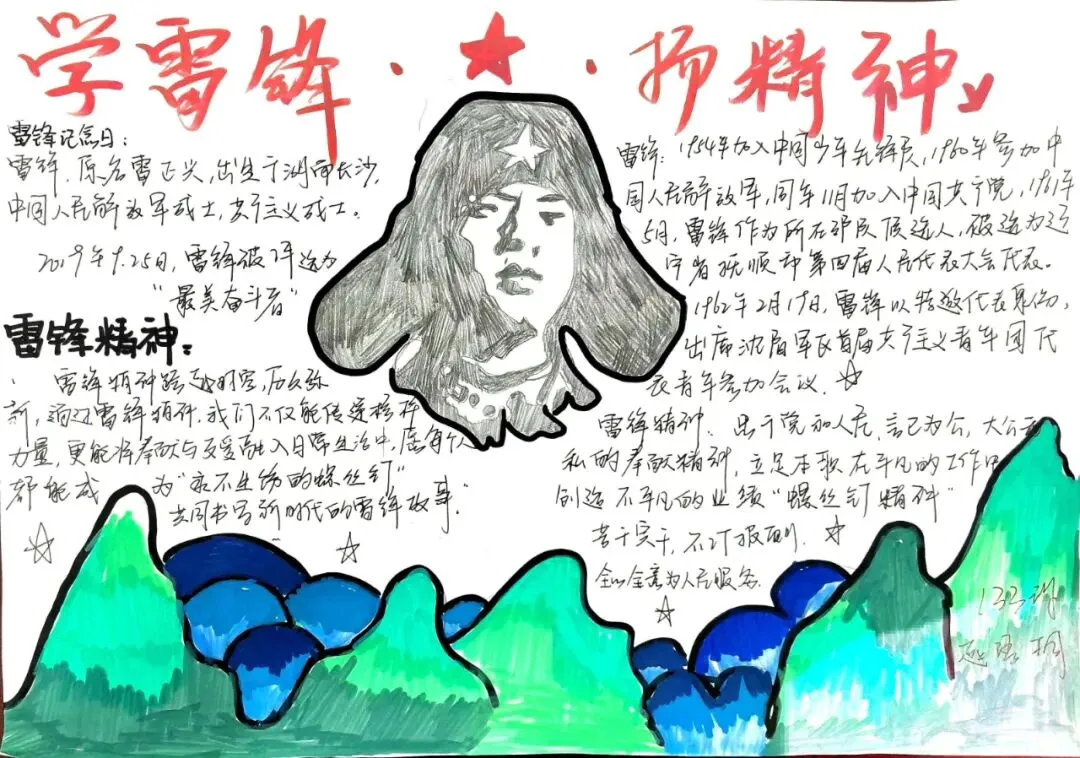 学雷锋·扬精神
雷锋纪念日：
雷锋，原名雷正兴，出生于湖南长沙，
中国人民解放军战士，共产主义战士。
2019年9.25日，雷锋被评选为
“最美奋斗者”
雷锋精神：
雷锋精神跨越时空，历久弥
新，雷锋精神，我们不仅能传递榜样
力量，更能将奉献与友爱融入日常生活中，
都能成为“永不生锈的螺丝钉”
共同书写新时代的雷锋故事。
雷锋：1954年加入中国少年先锋队，1960年参加中
国人民解放军，同年11月加入中国共产党，1961年
5月，雷锋作为所在部队候选人，被选为辽
宁省抚顺市第四届人民代表大会代表。
1962年2月19日，雷锋以特邀代表身份，
出席沈阳军区首届共产主义青年团代
表青年参加会议.
雷锋精神：忠于党和人民，舍己为公，大公无
私的奉献精神，立足本职在平凡的工作中
创造不平凡的业绩“螺丝钉精神”
苦干实干，不计报酬.
全心全意为人民服务.
133班